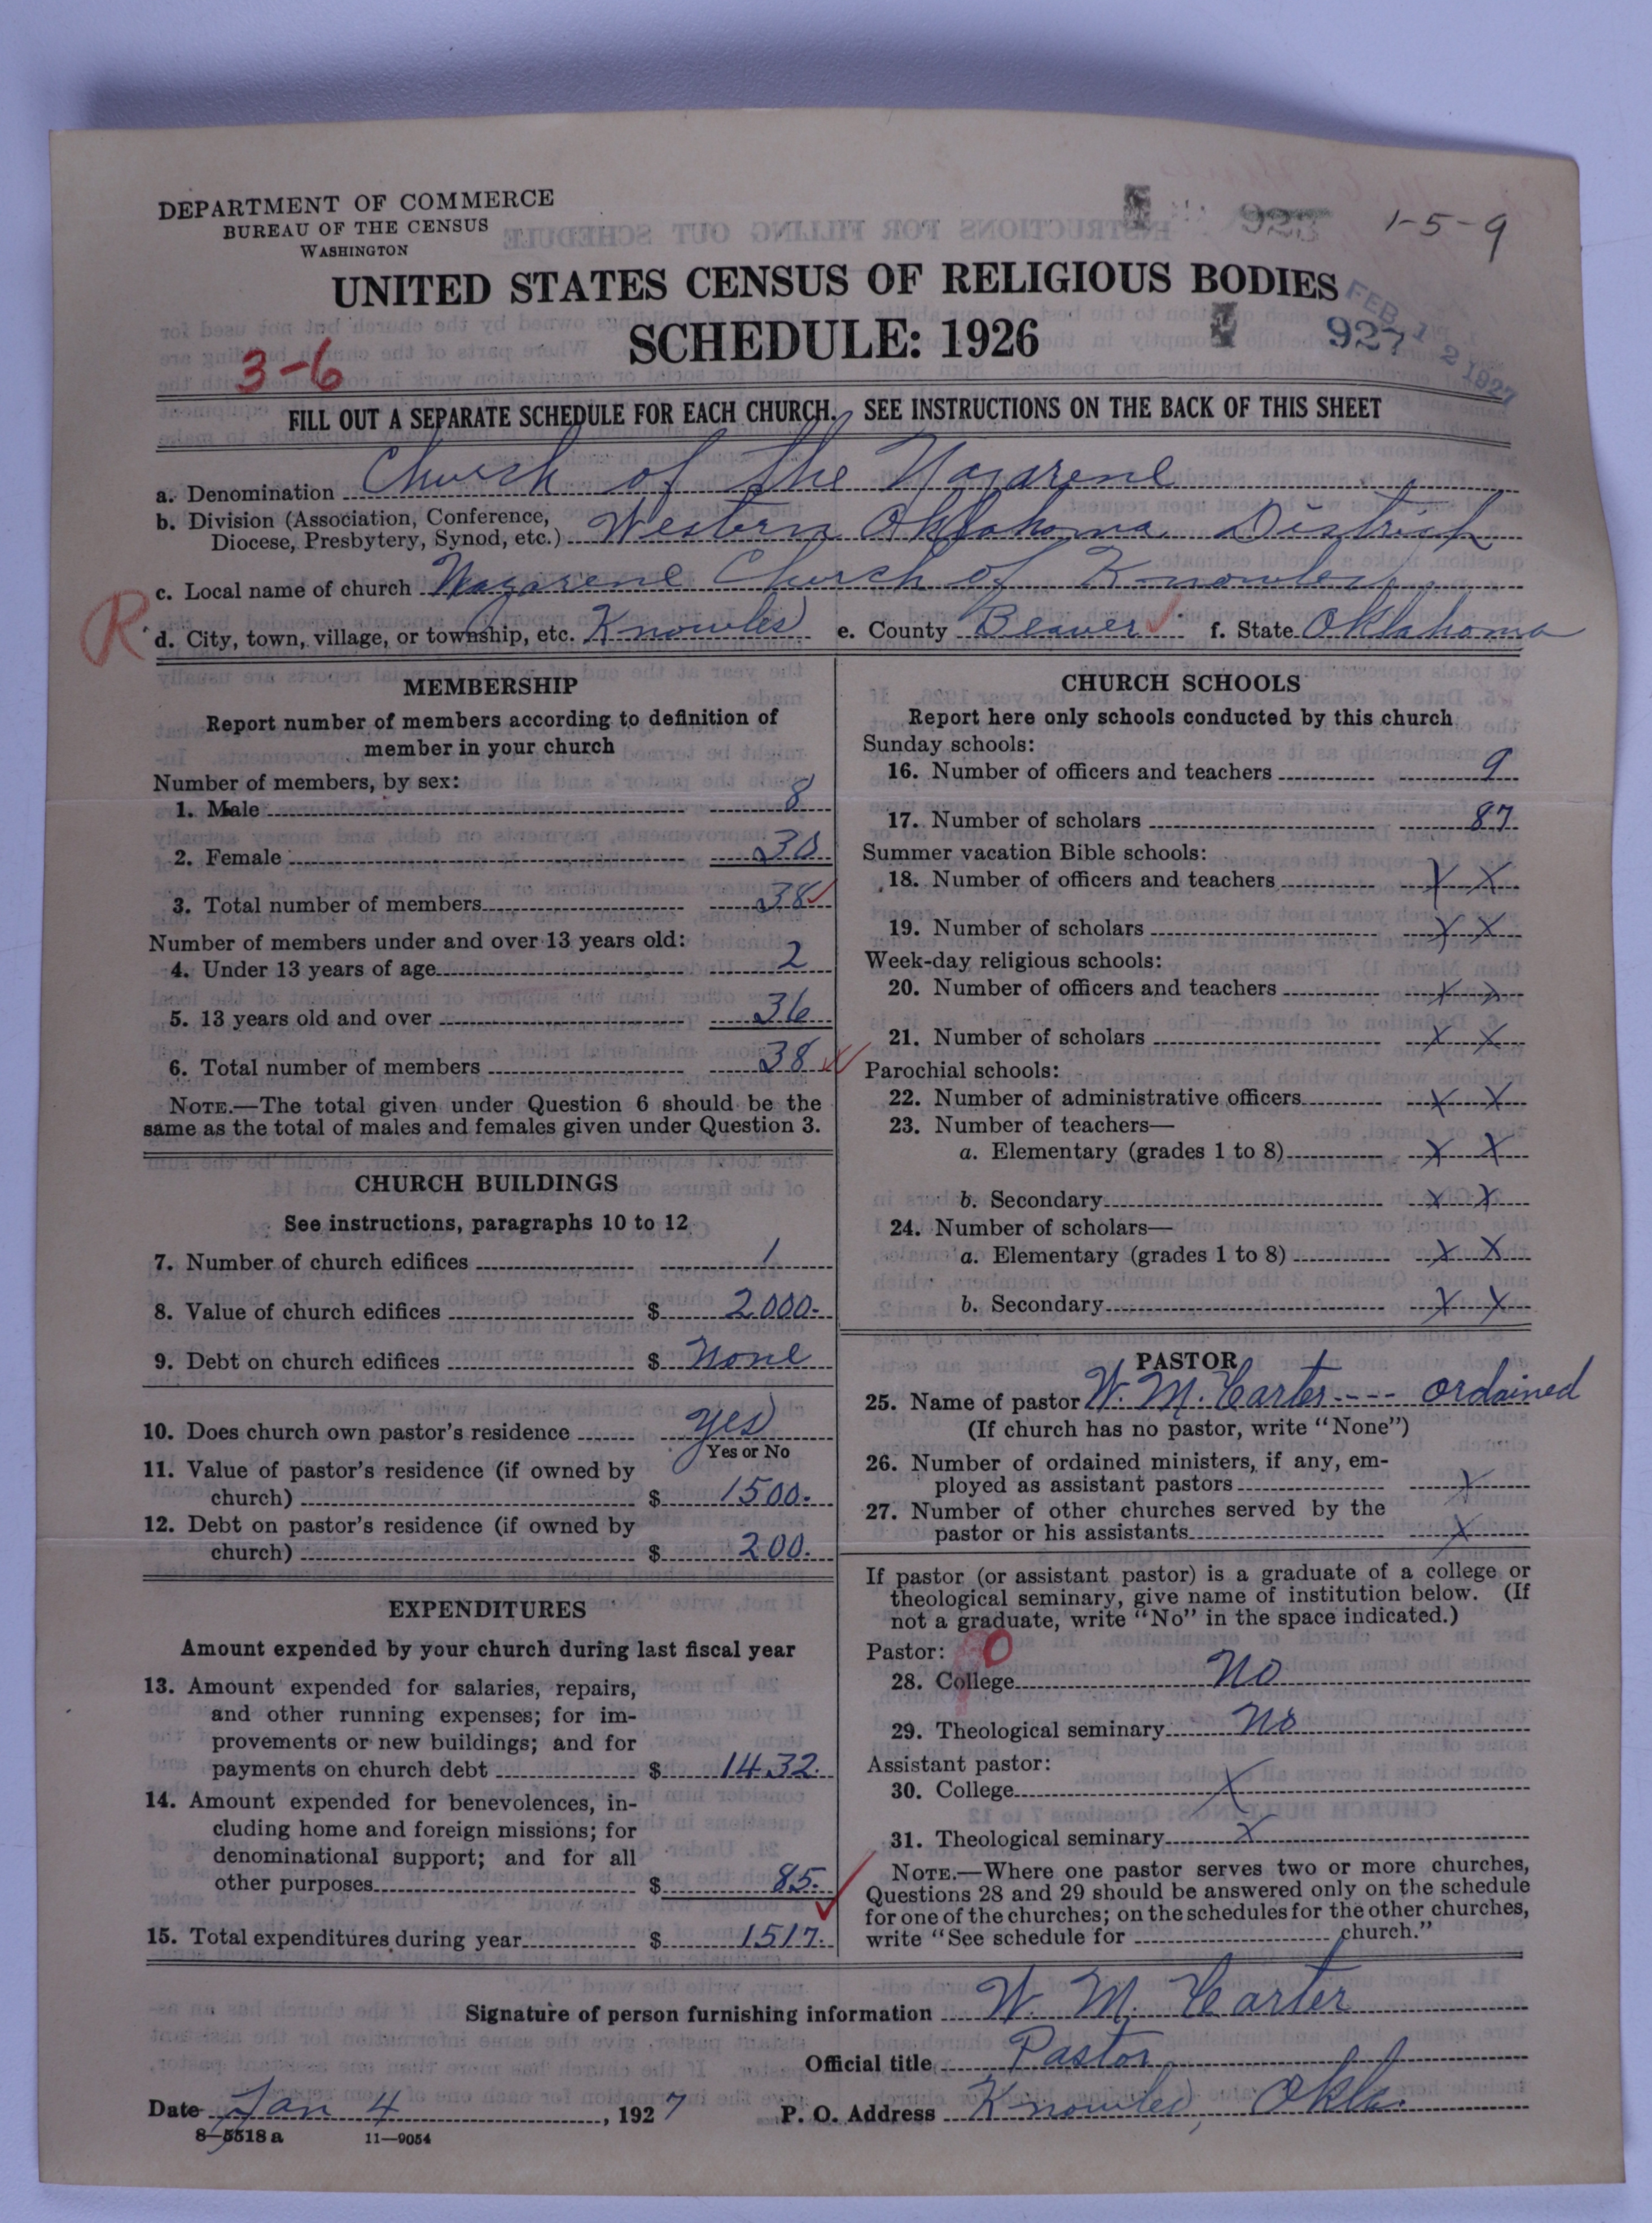 DEPARTMENT OF COMMERCE
BUREAU OF THE CENSUS
WASHINGTON
1-5-9
UNITED STATES CENSUS OF RELIGIOUS BODIES
SCHEDULE: 1926
927
FEB 12 1927
3-6
FILL OUT A SEPARATE SCHEDULE FOR EACH CHURCH. SEE INSTRUCTIONS ON THE BACK OF THIS SHEET
a. Denomination Church of the Nazarene
b. Division (Association, Conference, Diocese, Presbytery, Synod, etc.) Western Oklahoma District
c. Local name of church Nazarene Church of Knowles
R d. City, town, village, or township, etc. Knowles e. County Beaver f. State Oklahoma
MEMBERSHIP
Report number of members according to definition of
member in your church
Number of members, by sex:
1. Male 8
2. Female 30
3. Total number of members 38
Number of members under and over 13 years old:
4. Under 13 years of age 2
5. 13 years old and over 36
6. Total number of members 38
NOTE.—The total given under Question 6 should be the
same as the total of males and females given under Question 3.
CHURCH BUILDINGS
See instructions, paragraphs 10 to 12
7. Number of church edifices 1
8. Value of church edifices $ 2000.
9. Debt on church edifices $ None
10. Does church own pastor's residence yes
Yes or No
11. Value of pastor's residence (if owned by
church) $ 1500.
12. Debt on pastor's residence (if owned by
church) $ 200.
EXPENDITURES
Amount expended by your church during last fiscal year
13. Amount expended for salaries, repairs,
and other running expenses; for im-
provements or new buildings; and for
payments on church debt $ 1432.
14. Amount expended for benevolences, in-
cluding home and foreign missions; for
denominational support; and for all
other purposes $ 85.
15. Total expenditures during year $ 1517.
CHURCH SCHOOLS
Report here only schools conducted by this church
Sunday schools:
16. Number of officers and teachers 9
17. Number of scholars 87
Summer vacation Bible schools:
18. Number of officers and teachers X X
19. Number of scholars X X
Week-day religious schools:
20. Number of officers and teachers X X
21. Number of scholars X X
Parochial schools:
22. Number of administrative officers X X
23. Number of teachers—
a. Elementary (grades 1 to 8) X X
b. Secondary X X
24. Number of scholars—
a. Elementary (grades 1 to 8) X X
b. Secondary X X
PASTOR
25. Name of pastor W. M. Carter ---- ordained
(If church has no pastor, write "None")
26. Number of ordained ministers, if any, em-
ployed as assistant pastors X
27. Number of other churches served by the
pastor or his assistants X
If pastor (or assistant pastor) is a graduate of a college or
theological seminary, give name of institution below. (If
not a graduate, write "No" in the space indicated.)
Pastor: 0
28. College No
29. Theological seminary No
Assistant pastor:
30. College X
31. Theological seminary X
NOTE.—Where one pastor serves two or more churches,
Questions 28 and 29 should be answered only on the schedule
for one of the churches; on the schedules for the other churches,
write "See schedule for church."
Signature of person furnishing information W. M. Carter
Official title Pastor
Date Jan 4, 1927 P. O. Address Knowles, Okla.
8-5518 a 11-9054